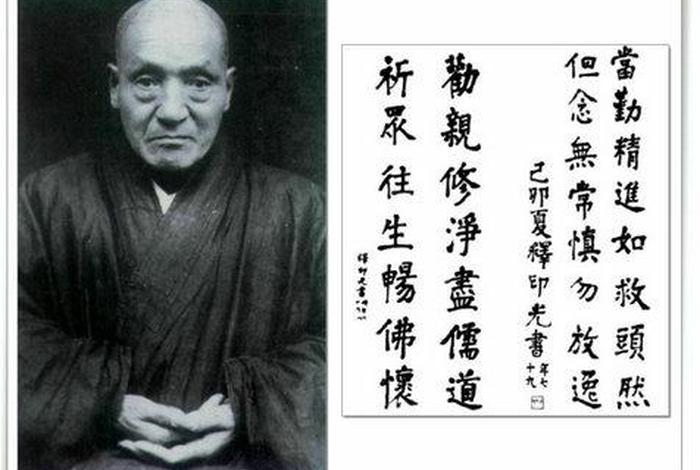 當勤精進如救頭然
但念無常慎勿放逸
己卯夏釋印光書
年七
十九
勸親修淨盡儒道
祈眾往生暢佛懷